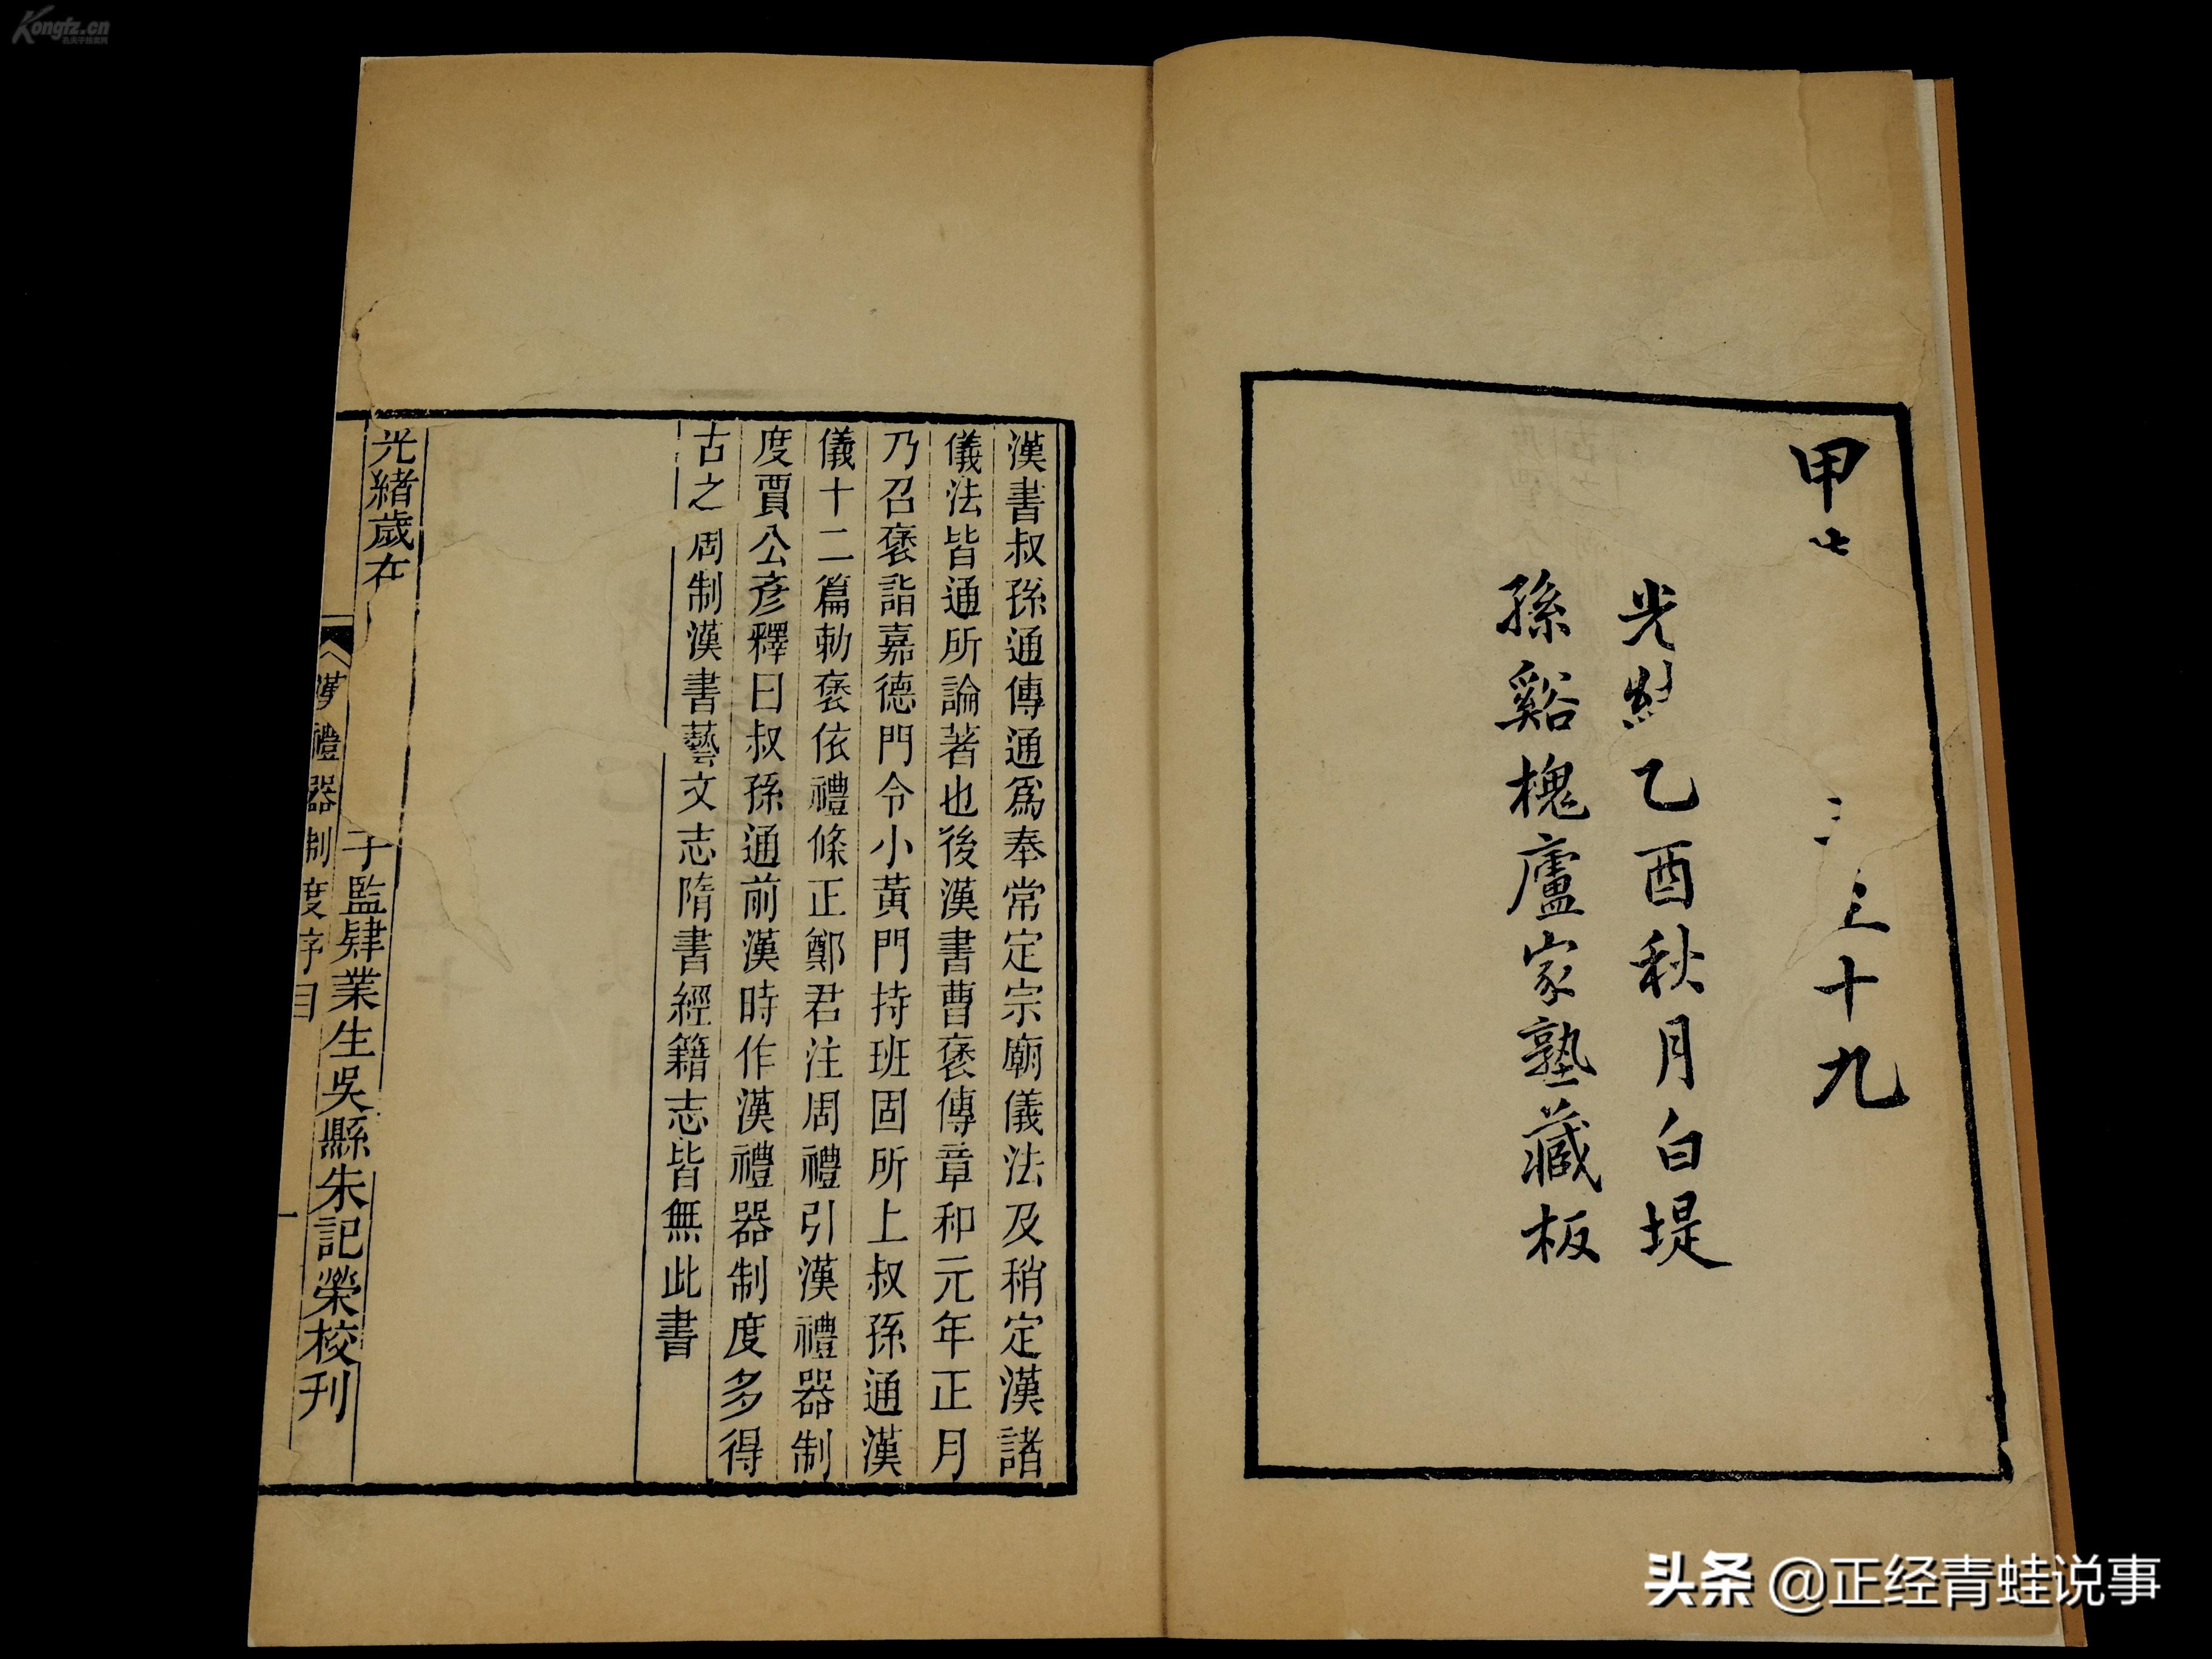 Kongfz.cn
甲七
十九
光緒乙酉秋月白堤
孫谿槐廬家塾藏板
漢書叔孫通傳通爲奉常定宗廟儀法及稍定漢諸
儀法皆通所論著也後漢書曹褒傳章和元年正月
乃召褒詣嘉德門令小黃門持班固所上叔孫通漢
儀十二篇勅褒依禮條正鄭君注周禮引漢禮器制
度賈公彥釋曰叔孫通前漢時作漢禮器制度多得
古之周制漢書藝文志隋書經籍志皆無此書
光緒歲在
子監肄業生吳縣朱記榮校刊
漢禮器制度序目
一
头条 @正经青蛙说事